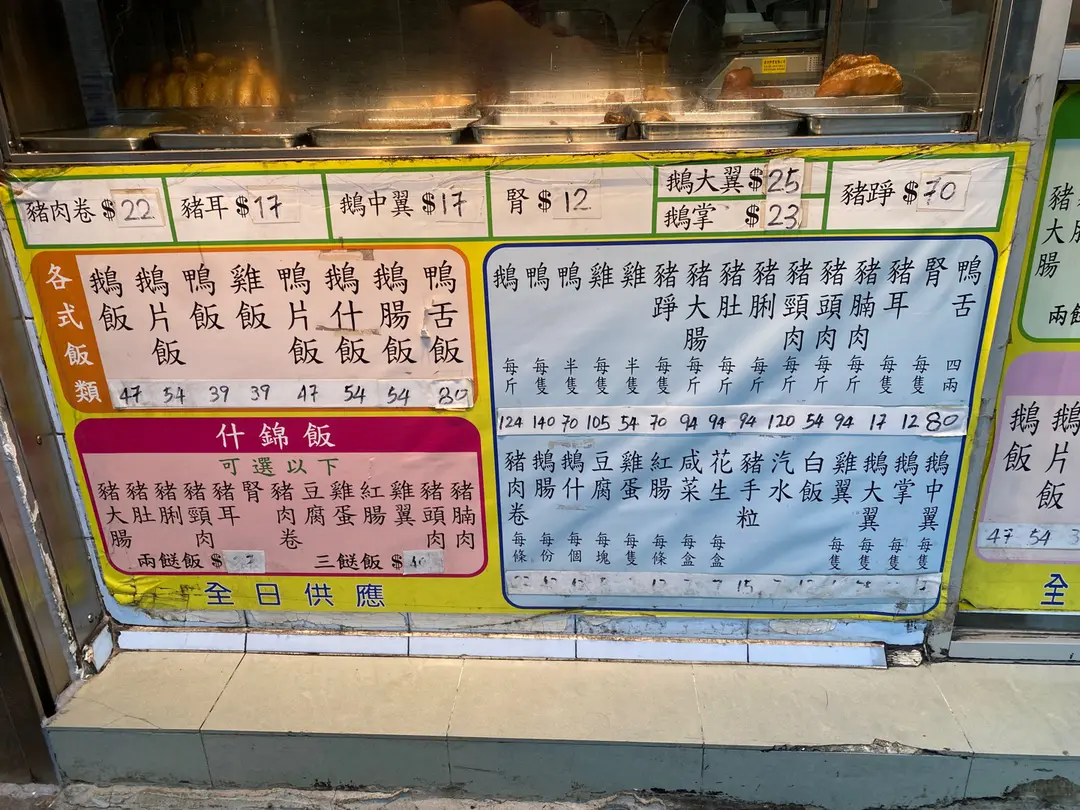 豬肉卷 $22
豬耳 $17
鵝中翼 $17
腎 $12
鵝大翼 $25
鵝掌 $23
豬踭 $70
各式飯類
鵝飯 47
鵝片飯 54
鴨飯 39
雞飯 39
鴨片飯 47
鵝什飯 54
鵝腸飯 54
鴨舌飯 80
什錦飯
可選以下
豬大腸
豬肚
豬脷
豬頸肉
豬耳
腎
豬肉卷
豆腐
雞蛋
紅腸
雞翼
豬頭肉
豬腩肉
兩餸飯 $
三餸飯 $
全日供應
鵝 每斤 124
鴨 每隻 140
鴨 半隻 70
雞 每隻 105
雞 半隻 54
豬踭 每隻 70
豬大腸 每斤 94
豬肚 每斤 94
豬脷 每斤 94
豬頸肉 每斤 120
豬頭肉 每斤 54
豬腩肉 每斤 94
豬耳 每隻 17
腎 每隻 12
鴨舌 四兩 80
豬肉卷 每條
鵝腸 每份
鵝什 每個
豆腐 每塊
雞蛋 每隻
紅腸 每條
咸菜 每盒
花生 每盒
豬手粒 15
汽水
白飯
雞翼 每隻
鵝大翼 每隻
鵝掌 每隻
鵝中翼
大腸
兩餸
鵝飯 47
鵝片飯 54
全